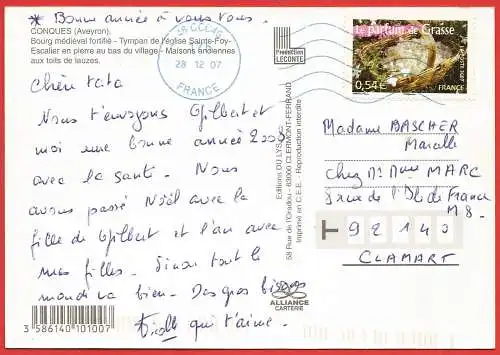 * Bonne année à vous tous.
CONQUES (Aveyron).
Bourg médieval fortifié - Tympan de l'église Sainte-Foy-
Escalier en pierre au bas du village- Maisons anciennes
aux toits de lauzes.
Chère tata
Nous t'envoyons Gilbert et
moi une bonne année 2008
avec la santé. Nous
avons passé Noël avec la
fille de Gilbert et l'an avec
mes filles. Sinon tout le
monde va bien. Des gros bisous
qui t'aime.
3 586140 101007
28 12 07
FRANCE
Production
LECONTE
Editions DU LYS
58 Rue de l'Oradou - 63000 CLERMONT-FERRAND
Imprimé en C.E.E. - Reproduction interdite
ALLIANCE
CARTERIE
Le parfum de Grasse
0,54€
FRANCE
Madame BASCHER
Marcelle
Chez Mr Mme MARC
rue de l'Île de France
M8.
T 92140
CLAMART